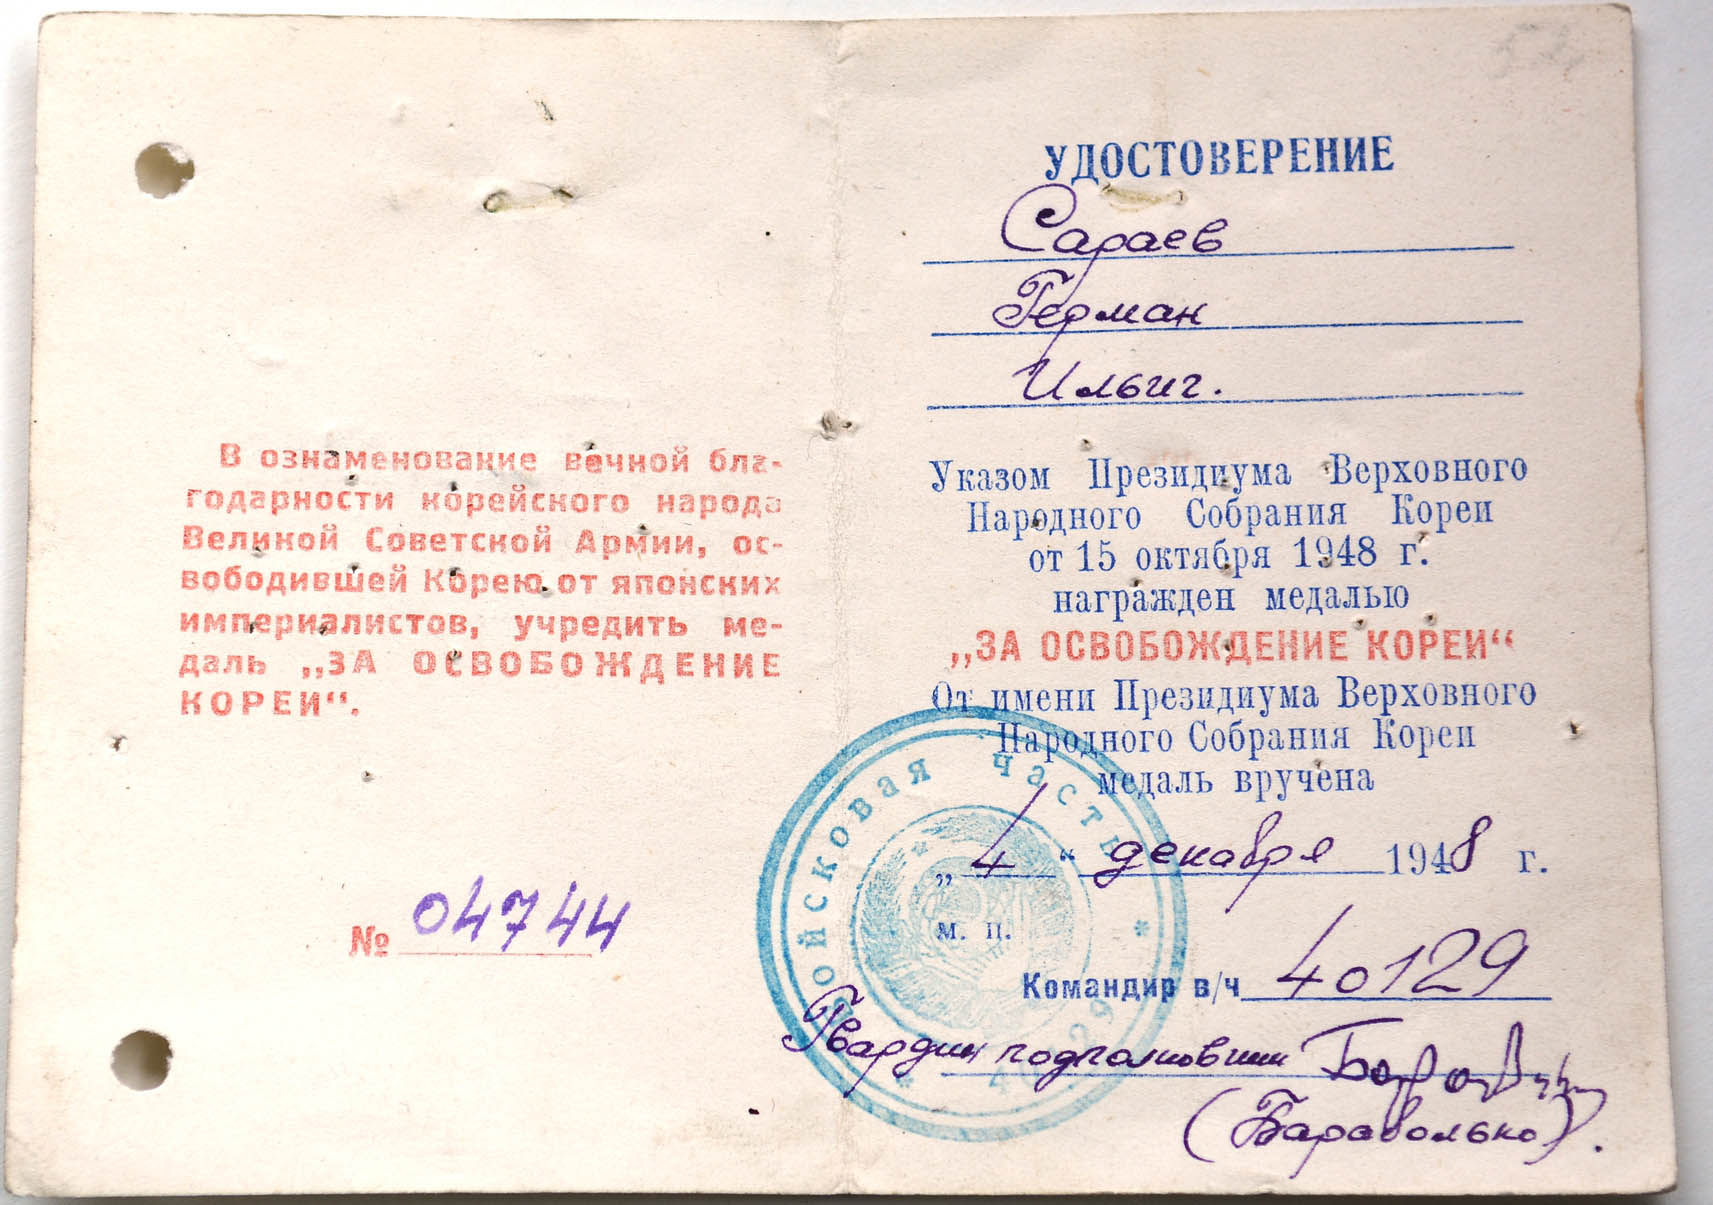 В ознаменование вечной бла-
годарности корейского народа
Великой Советской Армии, ос-
вободившей Корею от японских
империалистов, учредить ме-
даль „ЗА ОСВОБОЖДЕНИЕ
КОРЕИ“.
№ 04744
УДОСТОВЕРЕНИЕ
Сараев
Герман
Ильич.
Указом Президиума Верховного
Народного Собрания Кореи
от 15 октября 1948 г.
награжден медалью
„ЗА ОСВОБОЖДЕНИЕ КОРЕИ“
От имени Президиума Верховного
Народного Собрания Кореи
медаль вручена
„4“ декабря 1948 г.
м. п.
Командир в/ч 40129
Гвардии подполковник
(Бараволько).
Войсковая часть
40129